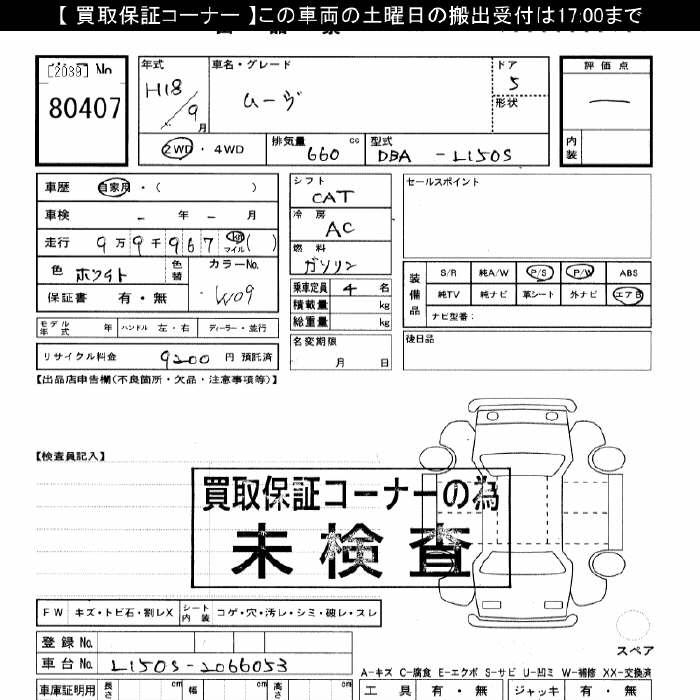 【 買取保証コーナー 】この車両の土曜日の搬出受付は17:00まで
[2039] No
80407
年式 H18/9月
車名・グレード ムーヴ
ドア 5
形状
評価点 —
内装
2WD・4WD
排気量 660 cc
型式 DBA - L150S
車歴 自家用・( )
車検 - 年 - 月
走行 9万9千967 km マイル( )
色 ホワイト 色替
カラーNo. W09
保証書 有・無
シフト CAT
冷房 AC
燃料 ガソリン
乗車定員 4 名
積載量 kg
総重量 kg
名変期限 月 日
セールスポイント
装備品 S/R 純A/W P/S P/W ABS
純TV 純ナビ 革シート 外ナビ エアB
ナビ型番:
後日品
モデル年式 年 ハンドル 左・右 ディーラー・並行
リサイクル料金 9200 円 預託済
【出品店申告欄(不良箇所・欠品・注意事項等)】
【検査員記入】
買取保証コーナーの為
未検査
FW キズ・トビ石・割レX シート内装 コゲ・穴・汚レ・シミ・破レ・スレ
登録 No.
車台 No. L150S-2066053
スペア
A-キズ C-腐食 E-エクボ S-サビ U-凹ミ W-補修 XX-交換済
車庫証明用 長さ cm 幅 cm 高さ cm
工具 有・無 ジャッキ 有・無